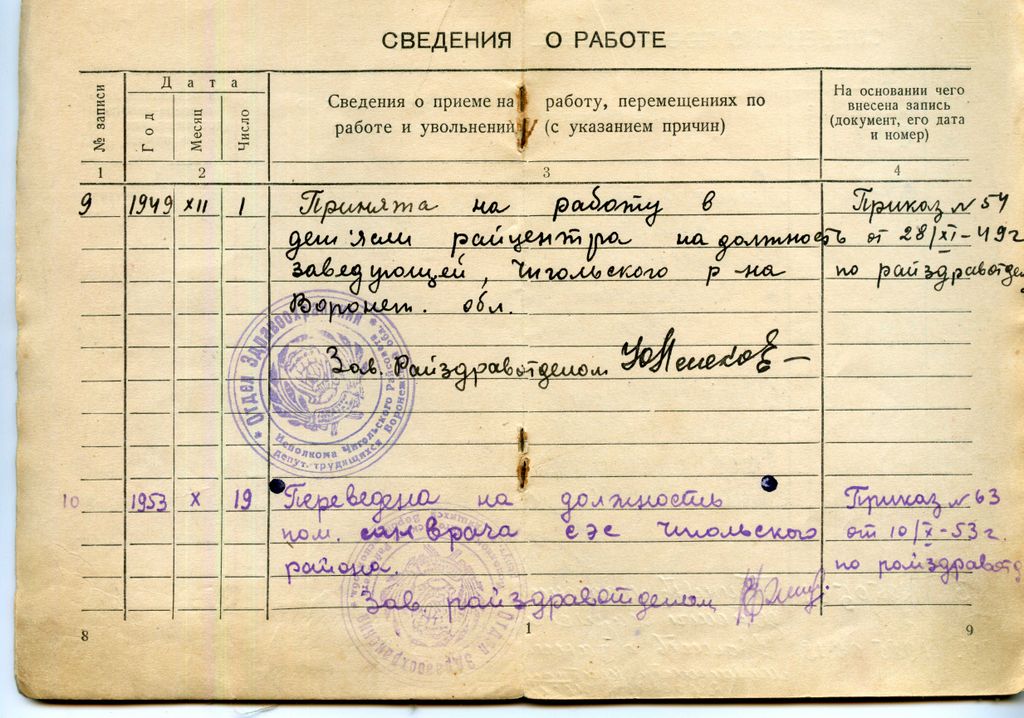 СВЕДЕНИЯ О РАБОТЕ
№ записи
Дата
Год
Месяц
Число
Сведения о приеме на работу, перемещениях по
работе и увольнении (с указанием причин)
На основании чего
внесена запись
(документ, его дата
и номер)
1 2 3 4
9 1949 XII 1 Принята на работу в Приказ № 54
дет ясли райцентра на должность от 28/XI-49г
заведующей, Чигольского р-на по райздравотде
Воронеж. обл.
Зав. Райздравотделом
ОТДЕЛ ЗДРАВООХРАНЕНИЯ
Исполкома Чигольского Райсовета
депут. трудящихся Воронежс
10 1953 X 19 Переведена на должность Приказ № 63
пом. санврача СЭС Чигольского от 10/X-53г.
района. по райздравотд
Зав райздравотделом
ОТДЕЛ ЗДРАВООХРАНЕНИЯ
8 1 9